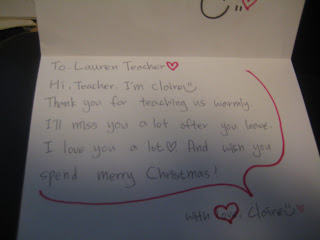 To. Lauren Teacher♡
Hi, Teacher. I'm Claire
Thank you for teaching us warmly.
I'll miss you a lot after you leave.
I love you a lot♡ And wish you
spend merry Christmas!
with Love, Claire